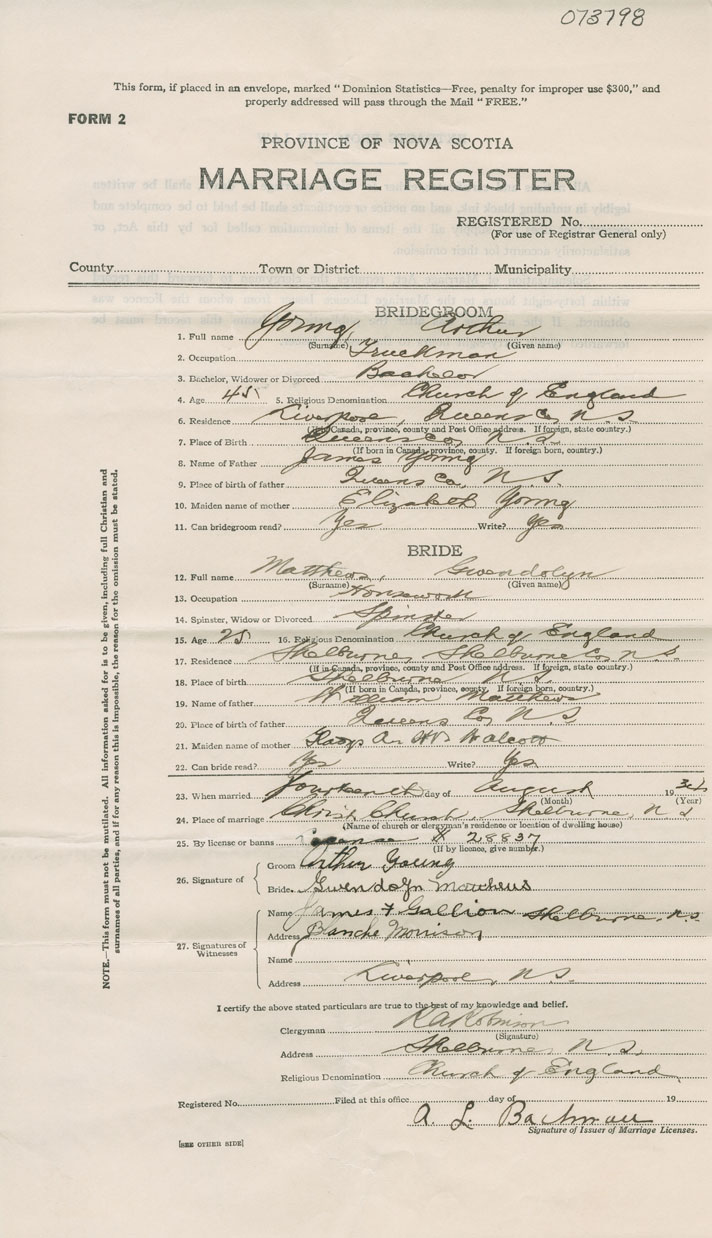 073798
This form, if placed in an envelope, marked "Dominion Statistics—Free, penalty for improper use $300," and
properly addressed will pass through the Mail "FREE."
FORM 2
PROVINCE OF NOVA SCOTIA
MARRIAGE REGISTER
REGISTERED No.
(For use of Registrar General only)
County Town or District Municipality
BRIDEGROOM
1. Full name Young, Arthur
(Surname) (Given name)
2. Occupation Truckman
3. Bachelor, Widower or Divorced Bachelor
4. Age 45 5. Religious Denomination Church of England
6. Residence Liverpool, Queens Co, N.S.
(If in Canada, province, county and Post Office address. If foreign, state country.)
7. Place of Birth Queens Co, N.S.
(If born in Canada, province, county. If foreign born, country.)
8. Name of Father James Young
9. Place of birth of father Queens Co, N.S.
10. Maiden name of mother Elizabeth Young
11. Can bridegroom read? Yes Write? Yes
BRIDE
12. Full name Matthews, Gwendolyn
(Surname) (Given name)
13. Occupation Housework
14. Spinster, Widow or Divorced Spinster
15. Age 25 16. Religious Denomination Church of England
17. Residence Shelburne, Shelburne Co, N.S.
(If in Canada, province, county and Post Office address. If foreign, state country.)
18. Place of birth Shelburne N.S.
(If born in Canada, province, county. If foreign born, country.)
19. Name of father William Matthews
20. Place of birth of father Queens Co, N.S.
21. Maiden name of mother Walcott
22. Can bride read? Yes Write? Yes
23. When married Fourteenth day of August 19 34
(Month) (Year)
24. Place of marriage Christ Church, Shelburne, N.S
(Name of church or clergyman's residence or location of dwelling house)
25. By license or banns 28837
(If by licence, give number.)
26. Signature of
Groom Arthur Young
Bride. Gwendolyn Matthews
27. Signatures of Witnesses
Name James F Gallion Shelburne, N.S
Address Blanche Morrison
Name
Address Liverpool, N.S.
I certify the above stated particulars are true to the best of my knowledge and belief.
Clergyman Robinson
(Signature)
Address Shelburne N.S.
Religious Denomination Church of England
Registered No. Filed at this office day of 19
A. L. Bachman
Signature of Issuer of Marriage Licenses.
[SEE OTHER SIDE]
NOTE.—This form must not be mutilated. All information asked for is to be given, including full Christian and
surnames of all parties, and if for any reason this is impossible, the reason for the omission must be stated.